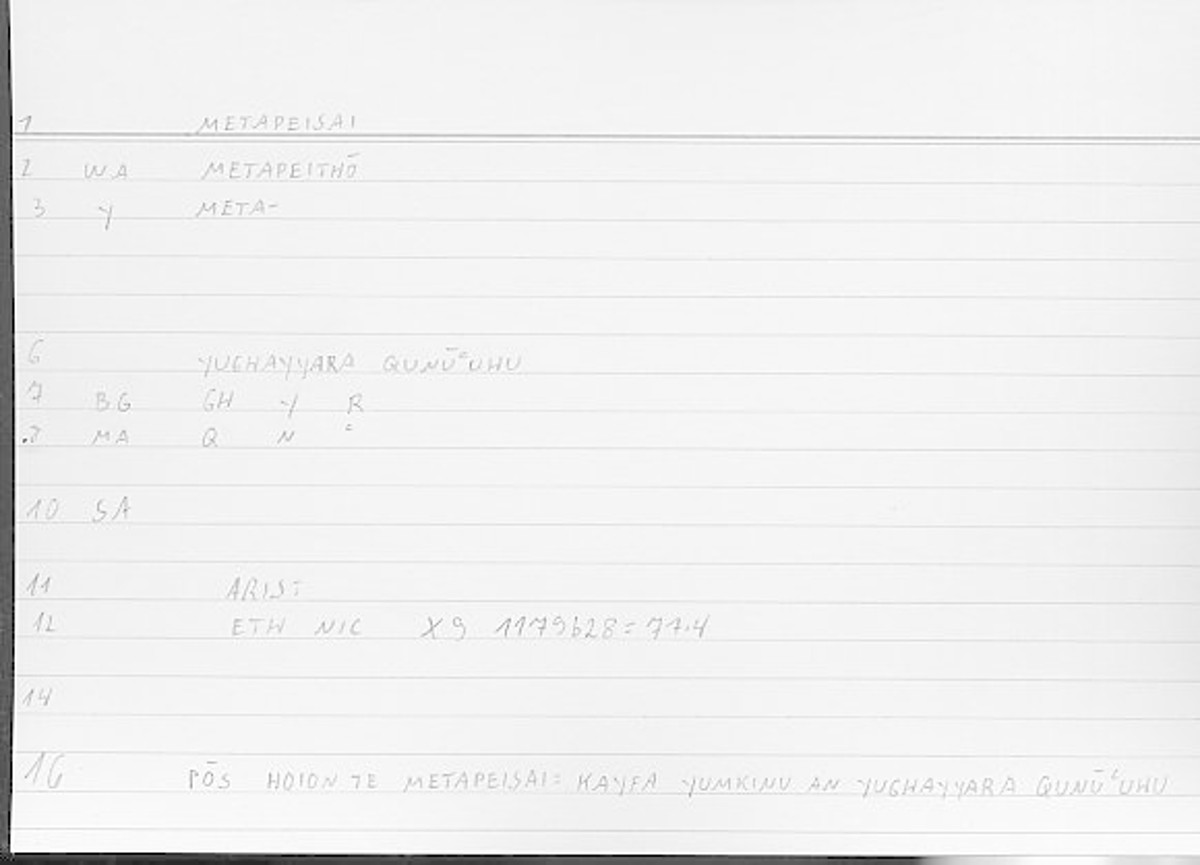 1 METAPEISAI
2 WA METAPEITHŌ
3 Y META-
6 YUGHAYYARA QUNŪʿUHU
7 BG GH Y R
8 MA Q N ʿ
10 SA
11 ARIST
12 ETH NIC X9 1179b28=77.4
14
16 PŌS HOION TE METAPEISAI= KAYFA YUMKINU AN YUGHAYYARA QUNŪʿUHU